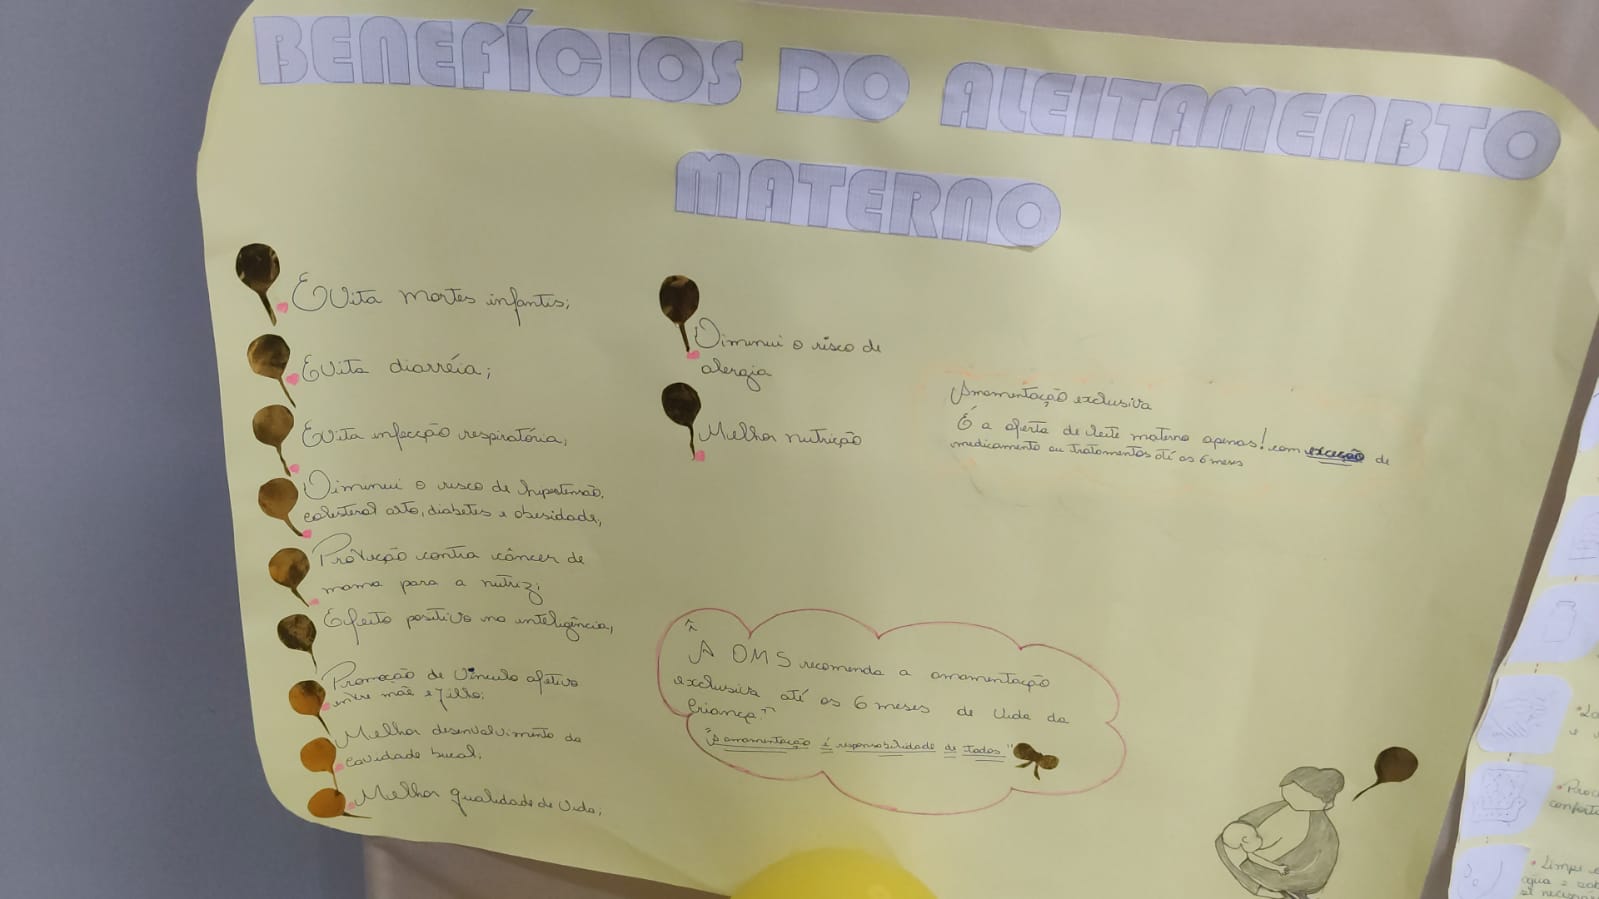 BENEFÍCIOS DO ALEITAMENBTO
MATERNO
Evita mortes infantis;
Evita diarréia;
Evita infecção respiratória;
Diminui o risco de hipertensão,
colesterol alto, diabetes e obesidade;
Proteção contra câncer de
mama para a nutriz;
Efeito positivo na inteligência;
Promoção de Vínculo afetivo
entre mãe e filho;
Melhor desenvolvimento da
cavidade bucal;
Melhor qualidade de vida;
Diminui o risco de
alergia
Melhor nutrição
Amamentação exclusiva
É a oferta de leite materno apenas! com exceção de
medicamento ou tratamentos até os 6 meses
"A OMS recomenda a amamentação
exclusiva até os 6 meses de vida da
criança."
"A amamentação é responsabilidade de todos"
e
água e